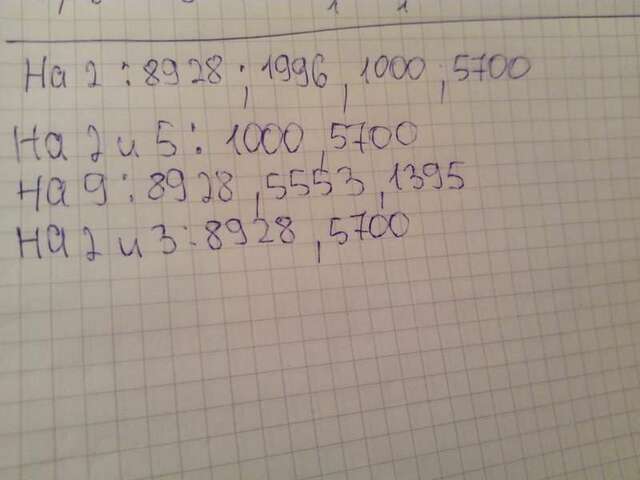 На 2 : 8928 ; 1996 , 1000 ; 5700
На 2 и 5 : 1000 , 5700
На 9 : 8928 , 5553 , 1395
На 2 и 3 : 8928 , 5700